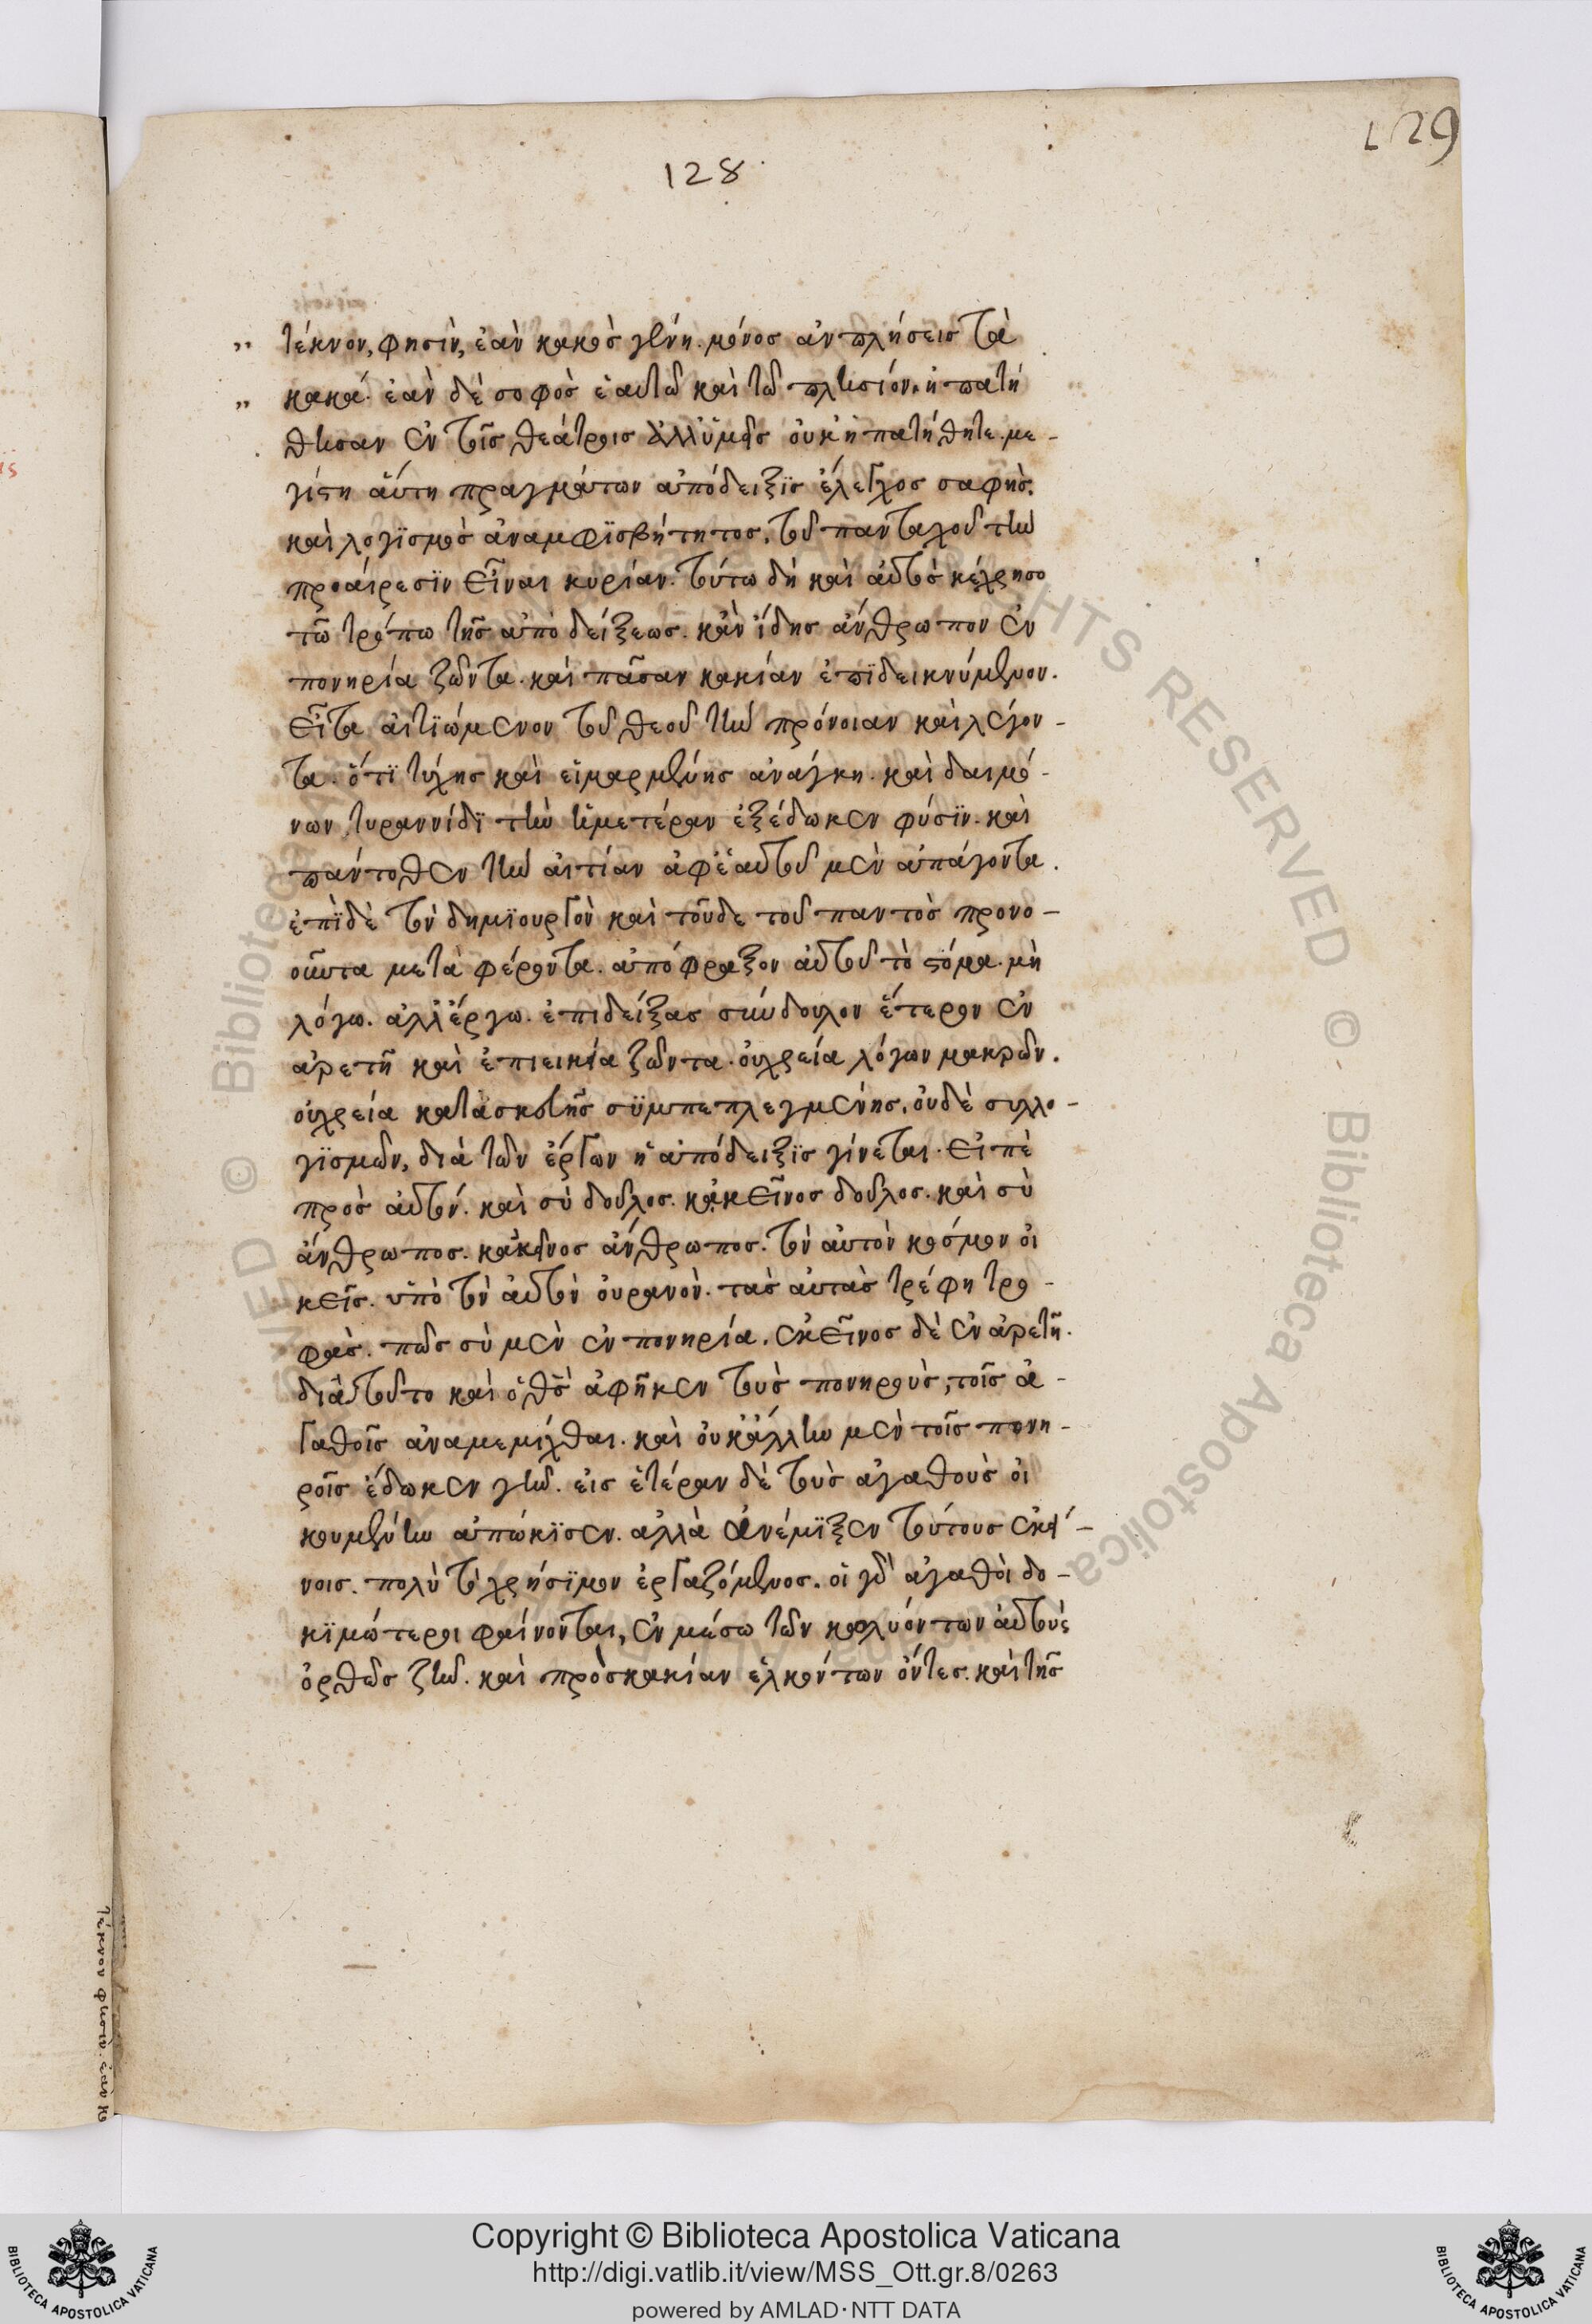 129
128
„ τέκνον, φησὶν, ἐὰν κακὸς γένη. μόνος ἀν πλήσεις τὰ
„ κακά. ἐὰν δὲ σοφὸς ἑαυτῶ καὶ τῶ πλησίον. ἠπατή
θησαν ἐν τοῖς θεάτροις ἀλλ' ὑμεῖς οὐκ ἠπατήθητε. με-
γίστη αὕτη πραγμάτων ἀπόδειξϊς ἔλεγχος σαφὴς.
καὶ λογϊσμὸς ἀναμφϊσβήτητος. τοῦ πανταχοῦ τὴν
προαίρεσϊν εἶναι κυρίαν. τούτω δὴ καὶ αὐτὸς κέχρησο
τῶ τρόπω τῆς ἀποδείξεως. κἂν ἴδης ἄνθρωπον ἐν
πονηρία ζῶντα. καὶ πᾶσαν κακίαν ἐπϊδεικνύμενον.
εἶτα αἰτϊώμενον τοῦ θεοῦ τὴν πρόνοιαν καὶ λέγον-
τα. ὅτϊ τύχης καὶ εἱμαρμένης ἀνάγκη. καὶ δαιμό-
νων τυραννίδϊ τὴν ἡμετέραν ἐξέδωκεν φύσϊν. καὶ
πάντοθεν τὴν αἰτίαν ἀφ' ἑαυτοῦ μὲν ἀπάγοντα.
ἐπϊδὲ τὸν δημϊουργὸν καὶ τοῦδε τοῦ παντὸς προνο-
οῦντα μεταφέροντα. ἀπόφραξον αὐτοῦ τὸ στόμα. μὴ
λόγω. ἀλλ' ἔργω. ἐπιδείξας σύνδουλον ἕτερον ἐν
ἀρετῆ καὶ ἐπιεικεία ζῶντα. οὐ χρεία λόγων μακρῶν.
οὐ χρεία κατασκευῆς σϋμπεπλεγμένης. οὐδὲ συλλο-
γϊσμῶν, διὰ τῶν ἔργων ἡ ἀπόδειξϊς γίνεται. εἰπὲ
πρὸς αὐτόν. καὶ σὺ δοῦλος. κἀκεῖνος δοῦλος. καὶ σὺ
ἄνθρωπος. κἀκεῖνος ἄνθρωπος. τὸν αὐτὸν κόσμον οἰ
κεῖς. ὑπὸ τὸν αὐτὸν οὐρανὸν. τὰς αὐτὰς τρέφη τρο-
φάς. πῶς σὺ μὲν ἐν πονηρία. ἐκεῖνος δὲ ἐν ἀρετῆ.
διὰ τοῦτο καὶ ὁ θς ἀφῆκεν τοὺς πονηροὺς, τοῖς ἀ-
γαθοῖς ἀναμεμίχθαι. καὶ οὐκ ἄλλην μὲν τοῖς πονη-
ροῖς ἔδωκεν γῆν. εἰς ἑτέραν δὲ τοὺς ἀγαθοὺς οἰ
κουμένην ἀπώκϊσεν. ἀλλὰ ἀνέμϊξεν τούτους ἐκεί-
νοις. πολὺ τὸ χρήσϊμον ἐργαζόμενος. οἱ γὰρ ἀγαθοὶ δο-
κϊμώτεροι φαίνονται, ἐν μέσω τῶν κωλυόντων αὐτοὺς
ὀρθῶς ζῆν. καὶ πρὸς κακίαν ἑλκόντων ὄντες. καὶ τῆς
τέκνον φησὶν. ἐὰν κα
Copyright © Biblioteca Apostolica Vaticana
http://digi.vatlib.it/view/MSS_Ott.gr.8/0263
powered by AMLAD·NTT DATA